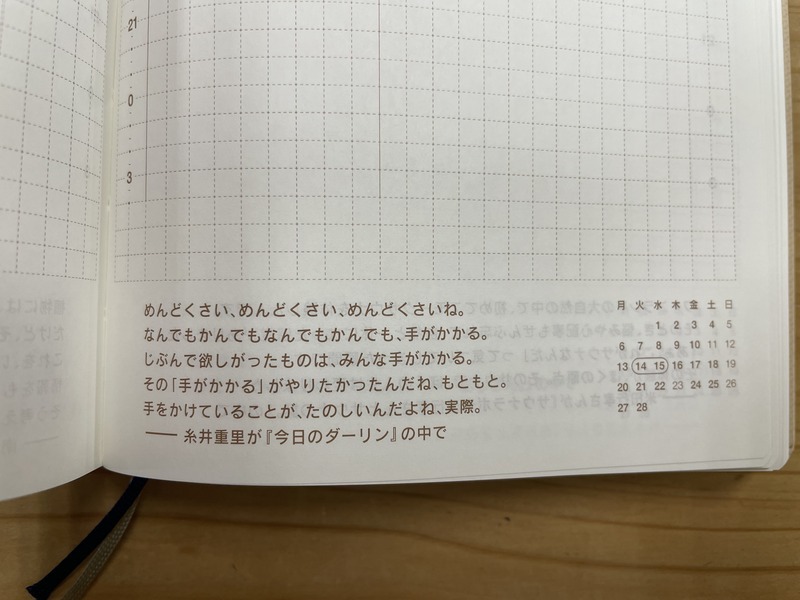 21
0
3
めんどくさい、めんどくさい、めんどくさいね。
なんでもかんでもなんでもかんでも、手がかかる。
じぶんで欲しがったものは、みんな手がかかる。
その「手がかかる」がやりたかったんだね、もともと。
手をかけていることが、たのしいんだよね、実際。
—— 糸井重里が『今日のダーリン』の中で
月 火 水 木 金 土 日
1 2 3 4 5
6 7 8 9 10 11 12
13 14 15 16 17 18 19
20 21 22 23 24 25 26
27 28